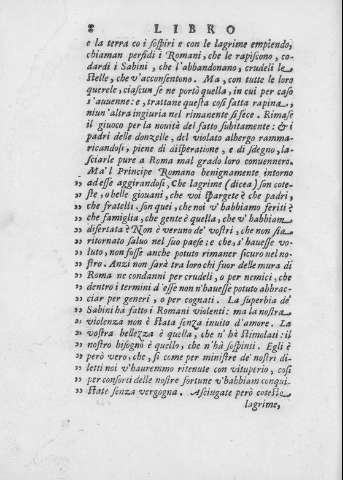 8 LIBRO
e la terra co i sospiri e con le lagrime empiendo,
chiaman perfidi i Romani, che le rapiscono, co-
dardi i Sabini, che l'abbandonano, crudeli le
stelle, che v'acconsentono. Ma, con tutte le loro
querele, ciascun se ne portò quella, in cui per caso
s'auuenne: e, trattane questa cosi fatta rapina,
niun'altra ingiuria nel rimanente si fece. Rimase
il giuoco per la nouità del fatto subitamente: & i
padri delle donzelle, del violato albergo ramma-
ricandosi, piene di disperatione, e di sdegno, la-
sciarle pure a Roma mal grado loro conuennero.
Ma'l Principe Romano benignamente intorno
" ad esse aggirandosi, Che lagrime (dicea) son cote-
" ste, o belle giouani, che voi spargete? che padri,
" che fratelli son qui, che noi v'habbiamo feriti?
" che famiglia, che gente è quella, che v'habbiam
" disertata? Non è veruno de' vostri, che non sia
" ritornato saluo nel suo paese: e che, s'hauesse vo-
" luto, non fosse anche potuto rimaner sicuro nel no-
" stro. Anzi non sarà tra loro chi fuor delle mura di
" Roma ne condanni per crudeli, o per nemici, che
" dentro i termini d'esse non n'hauesse potuto abbrac-
" ciar per generi, o per cognati. La superbia de'
" Sabini ha fatto i Romani violenti: ma la nostra
" violenza non è stata senza inuito d'amore. La
" vostra bellezza è quella, che n'hà stimolati: il
" nostro bisogno è quello, che n'hà sospinti. Egli è
" però vero, che, si come per ministre de' nostri di-
" letti noi v'hauremmo ritenute con vituperio, così
" per consorti delle nostre fortune v'habbiam conqui-
" state senza vergogna. Asciugate però coteste
lagrime,